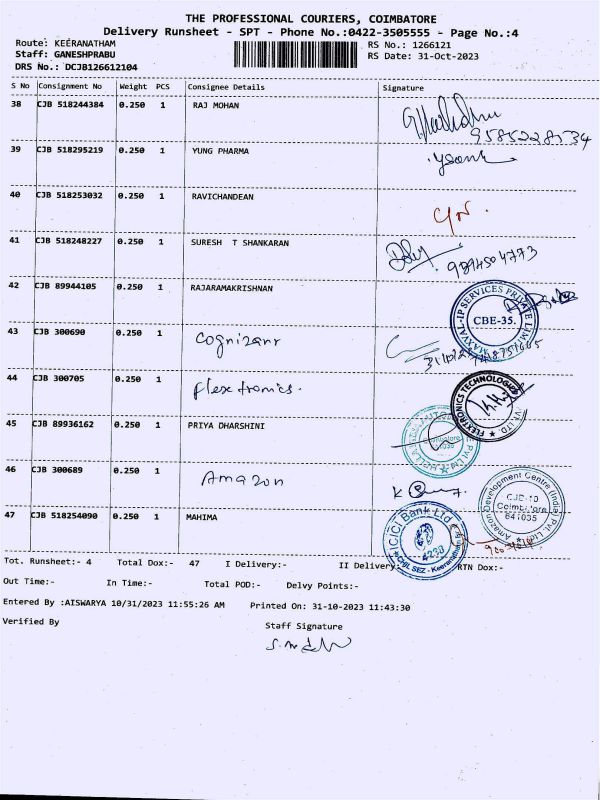 THE PROFESSIONAL COURIERS, COIMBATORE
Delivery Runsheet - SPT - Phone No.:0422-3505555 - Page No.:4
Route: KEERANATHAM
RS No.: 1266121
Staff: GANESHPRABU
RS Date: 31-Oct-2023
DRS No.: DCJB126612104
S No Consignment No Weight PCS Consignee Details Signature
38 CJB 518244384 0.250 1 RAJ MOHAN
39 CJB 518295219 0.250 1 YUNG PHARMA
40 CJB 518253032 0.250 1 RAVICHANDEAN
41 CJB 518248227 0.250 1 SURESH T SHANKARAN
42 CJB 89944105 0.250 1 RAJARAMAKRISHNAN
MAXVAL-IP SERVICES PRIVATE LIMITED
CBE-35.
43 CJB 300690 0.250 1 Cognizant
44 CJB 300705 0.250 1 flextronics.
FLEXTRONICS TECHNOLOGIES PVT LTD.
45 CJB 89936162 0.250 1 PRIYA DHARSHINI
Coimbatore
46 CJB 300689 0.250 1 Amazon
Amazon Development Centre (India) Pvt. Ltd.
CJB-10
Coimbatore
641035
47 CJB 518254090 0.250 1 MAHIMA
ICICI Bank Ltd
4220
Tot. Runsheet:- 4 Total Dox:- 47 I Delivery:- II Delivery:- RTN Dox:-
Out Time:- In Time:- Total POD:- Delvy Points:-
Entered By :AISWARYA 10/31/2023 11:55:26 AM Printed On: 31-10-2023 11:43:30
Verified By
Staff Signature